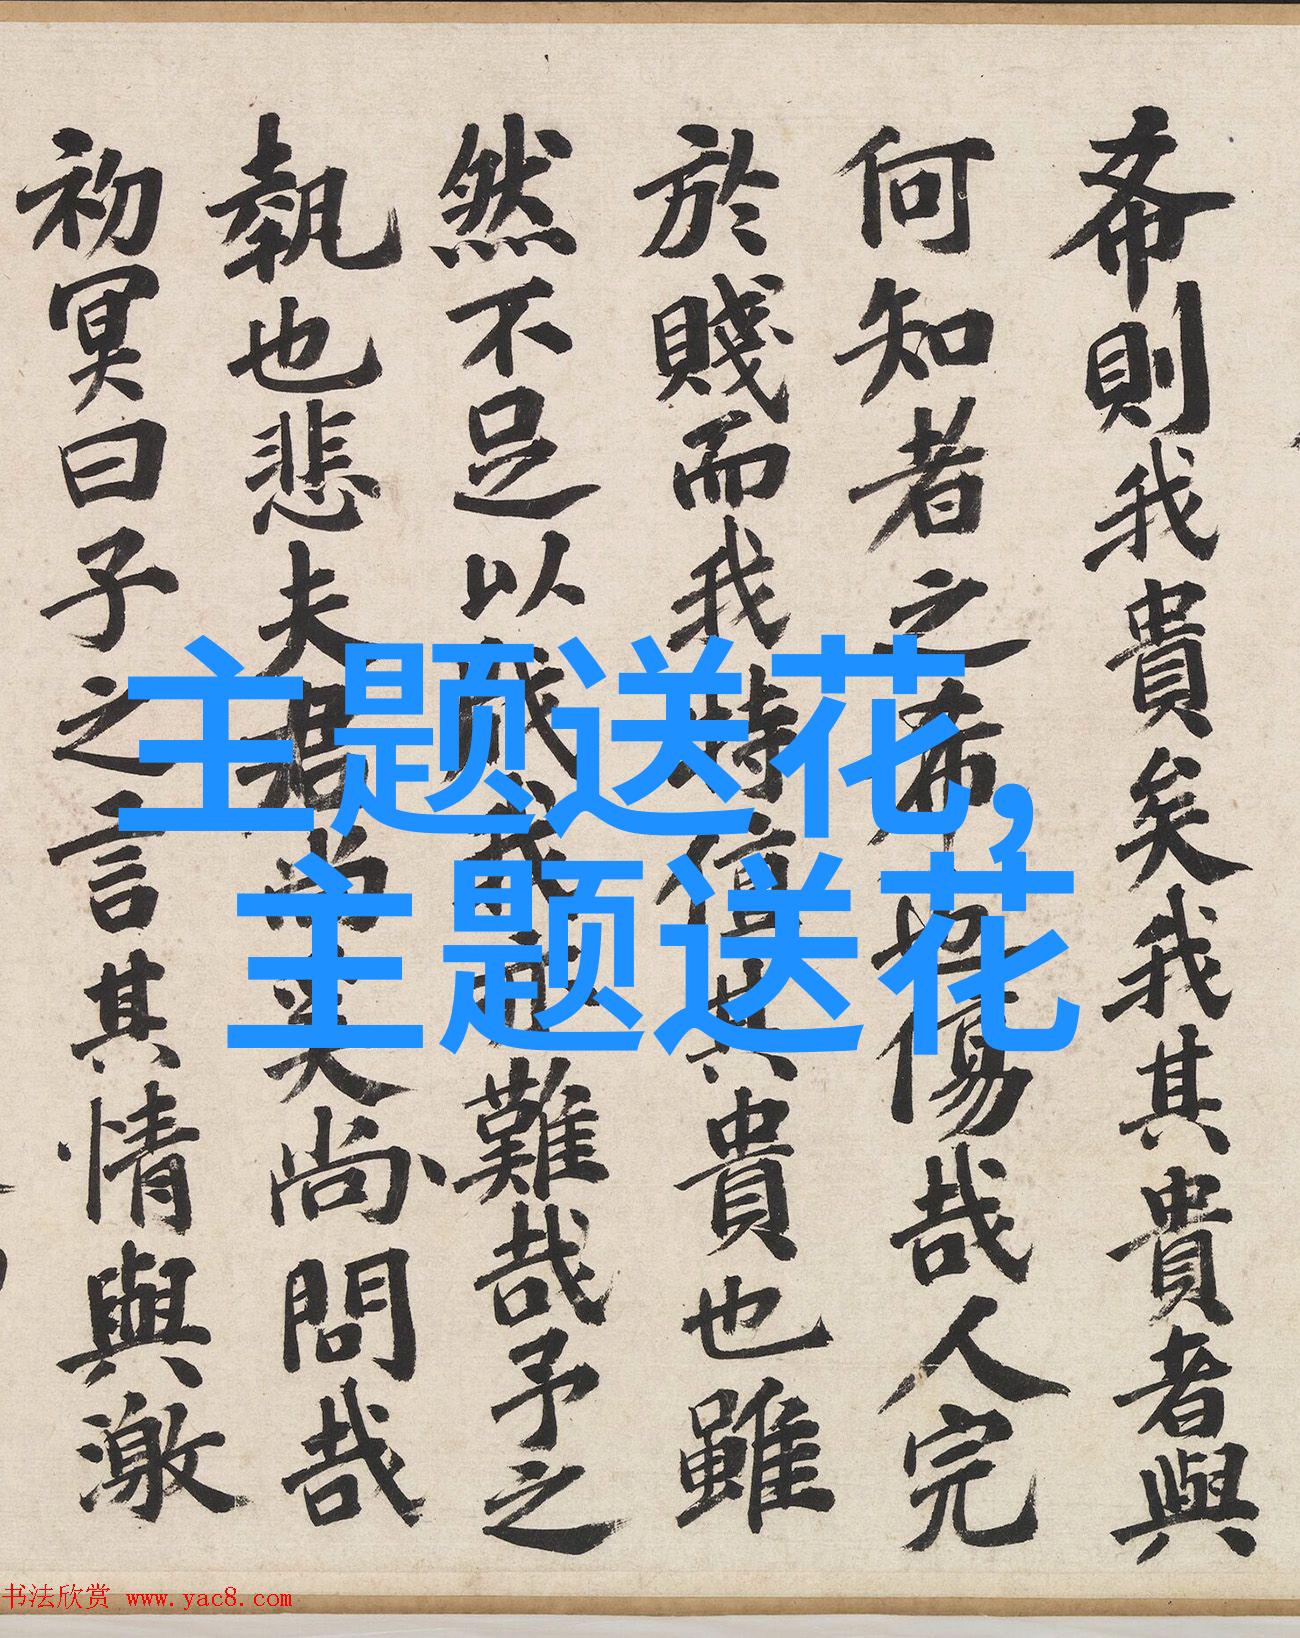 希則我貴矣我其貴者與
何知者之希也傷哉人完
於賤而我恃値其貴也雖
然不足以成我所難哉予之
執也悲夫君尚矣尚問哉
初冥曰子之言其情與激
主题送花,
主题送花
书法欣赏 www.yac8.com